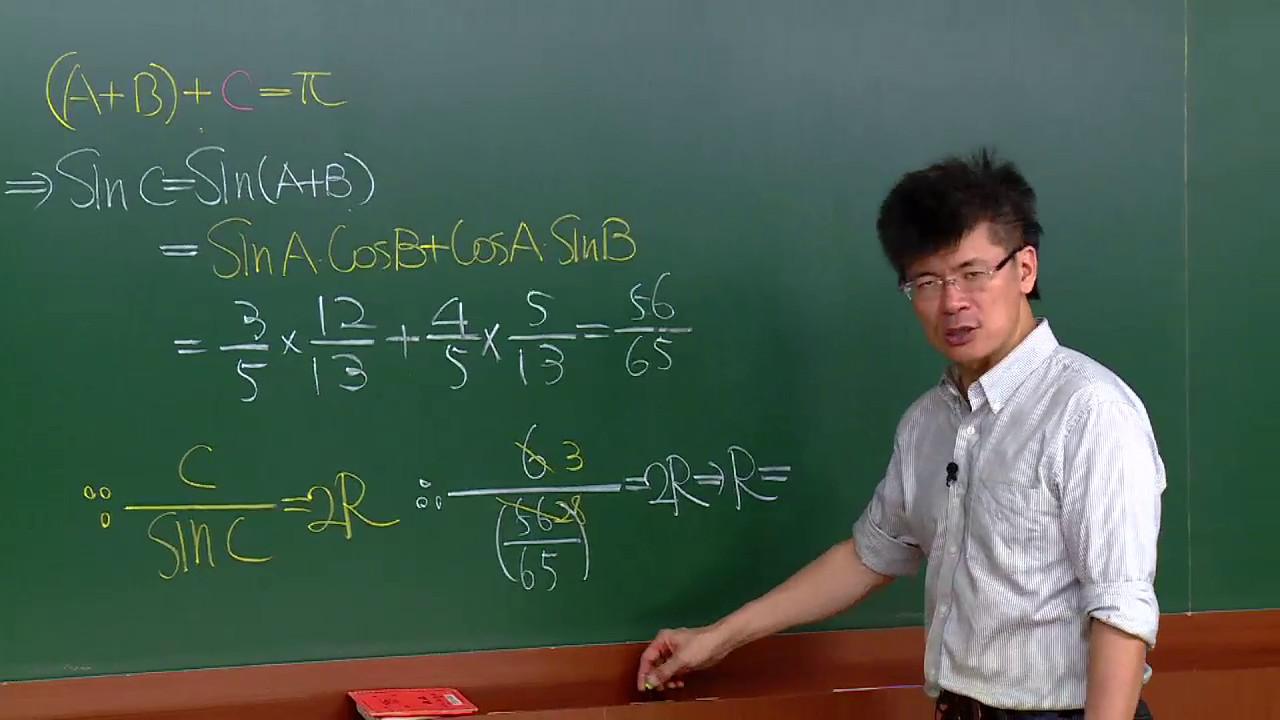 (A+B)+C=π
⇒SinC=Sin(A+B)
=SinA·CosB+CosA·SinB
=3/5×12/13+4/5×5/13=56/65
∵C/SinC=2R ∴6 3/(56 28/65)=2R⇒R=